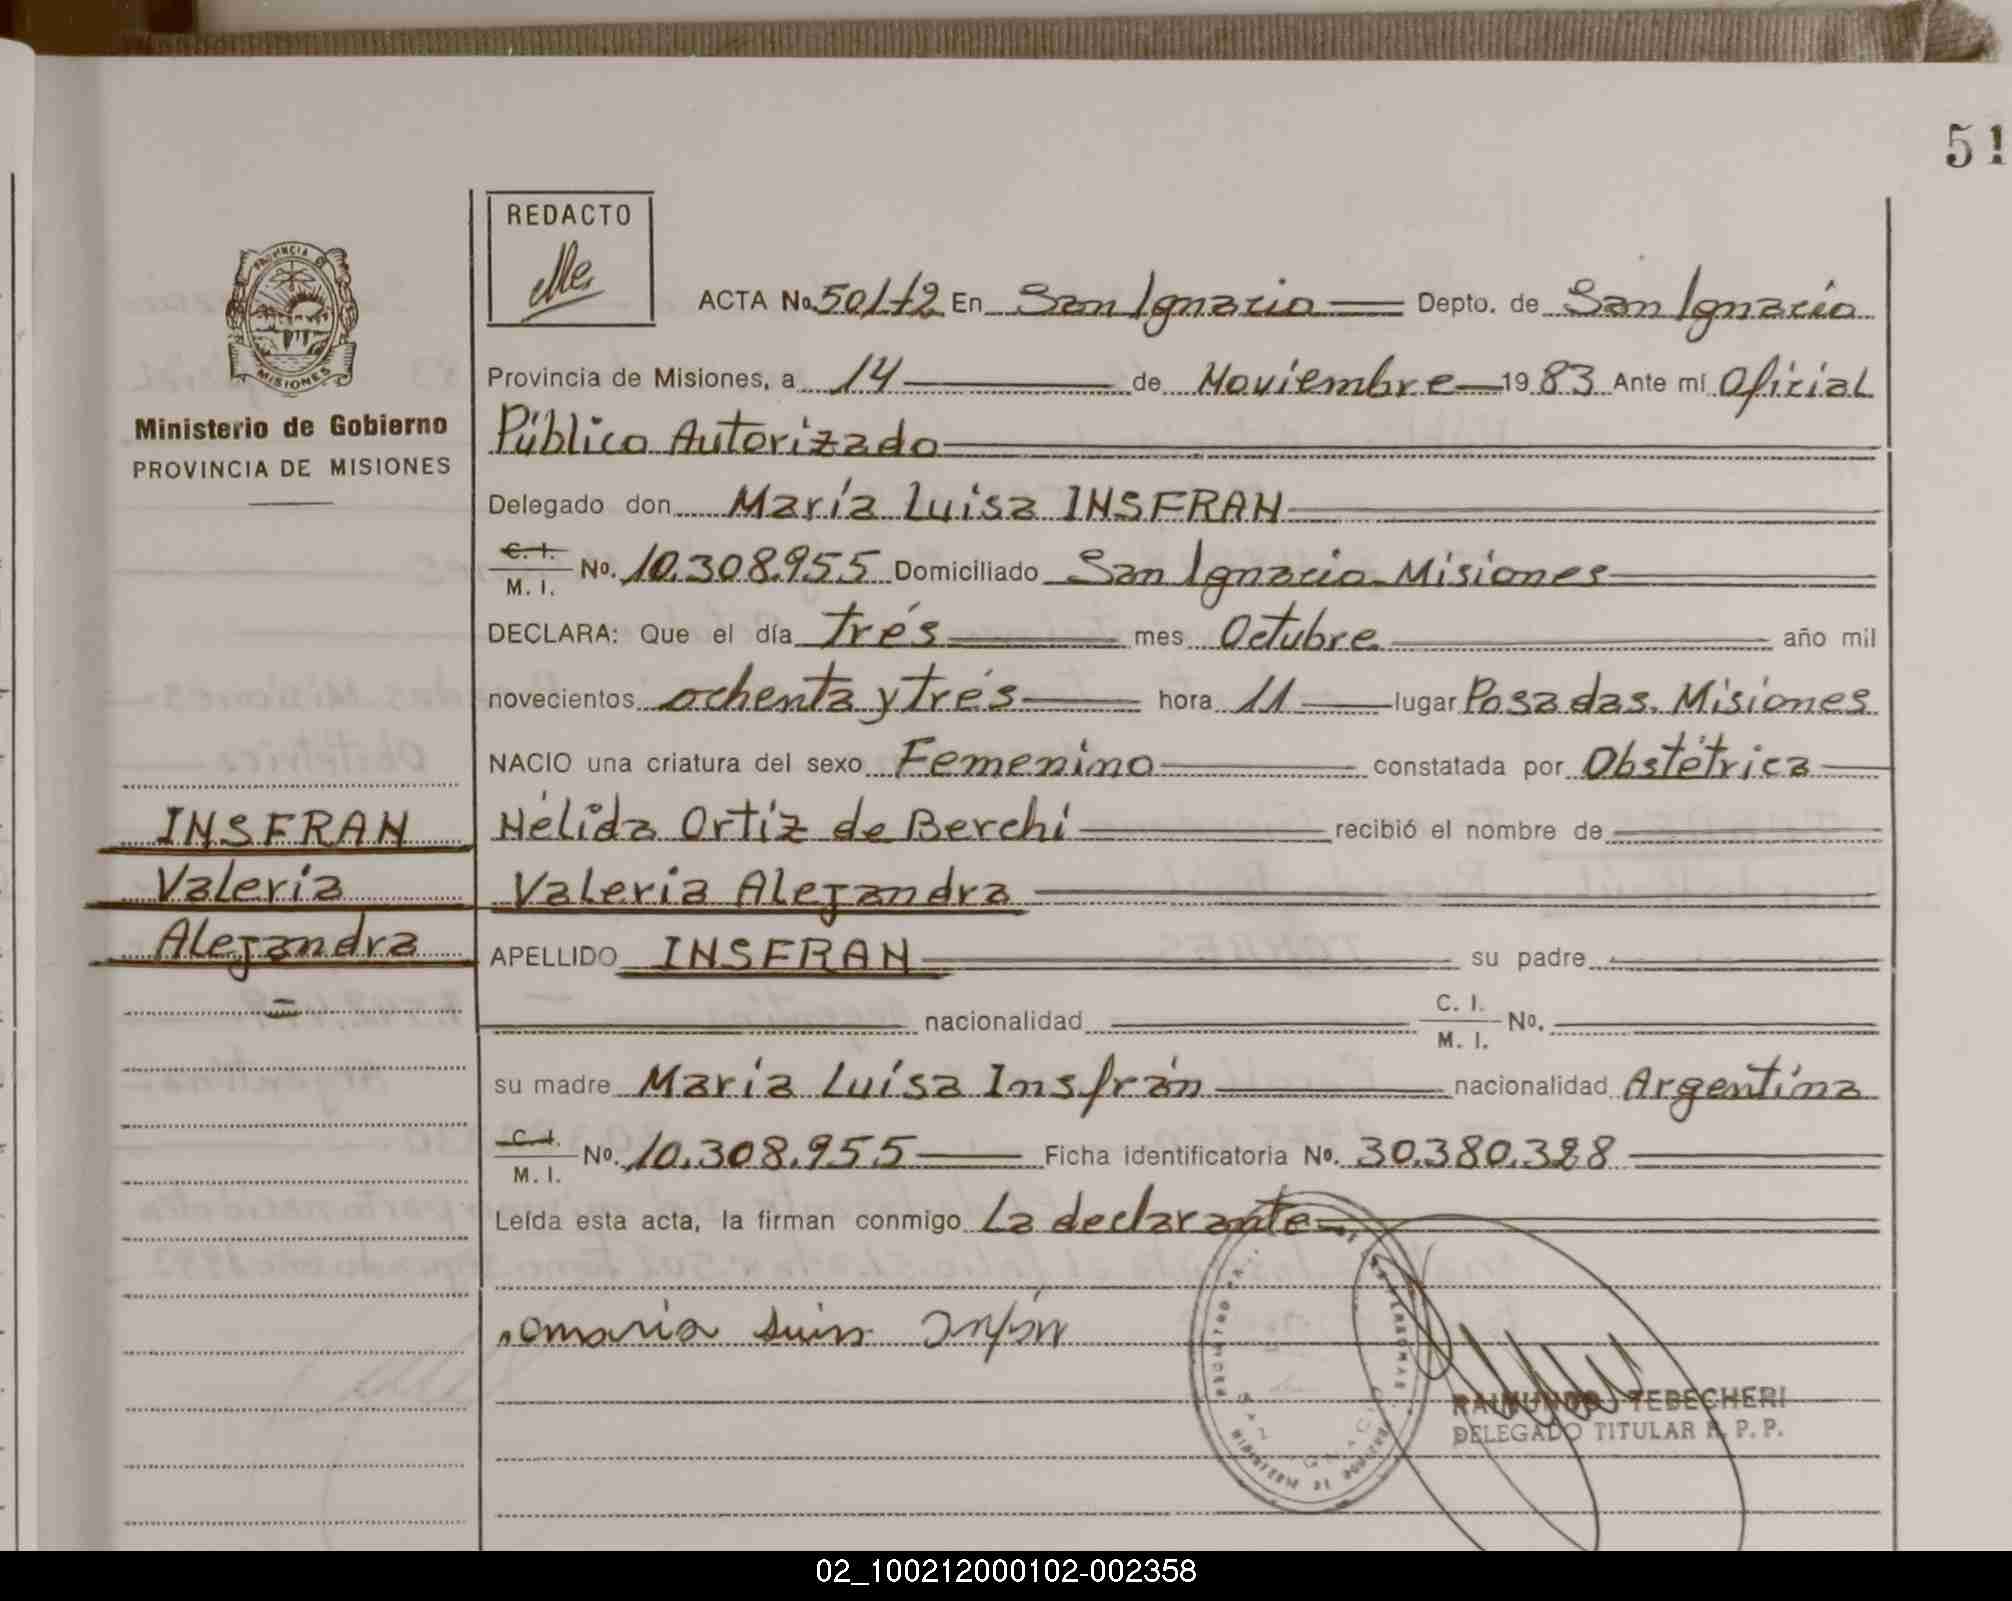 51
REDACTO
PROVINCIA DE
MISIONES
Ministerio de Gobierno
PROVINCIA DE MISIONES
ACTA No. 501-t2 En San Ignacio Depto. de San Ignacio
Provincia de Misiones, a 14 de Noviembre 1983 Ante mí Oficial
Público Autorizado
Delegado don María Luisa INSFRAN
C. I.
M. I. No. 10.308.955 Domiciliado San Ignacio-Misiones
DECLARA: Que el día trés mes Octubre año mil
novecientos ochenta y trés hora 11 lugar Posadas. Misiones
NACIO una criatura del sexo Femenino constatada por Obstétrica
Nélida Ortiz de Berchi recibió el nombre de
Valeria Alejandra
INSFRAN
Valeria
Alejandra
APELLIDO INSFRAN su padre
nacionalidad C. I.
M. I. No.
su madre María Luísa Insfrán nacionalidad Argentina
C. I.
M. I. No. 10.308.955 Ficha identificatoria No. 30.380.328
Leída esta acta, la firman conmigo La declarante
RAIMUNDO TEBECHERI
DELEGADO TITULAR R. P. P.
02_100212000102-002358